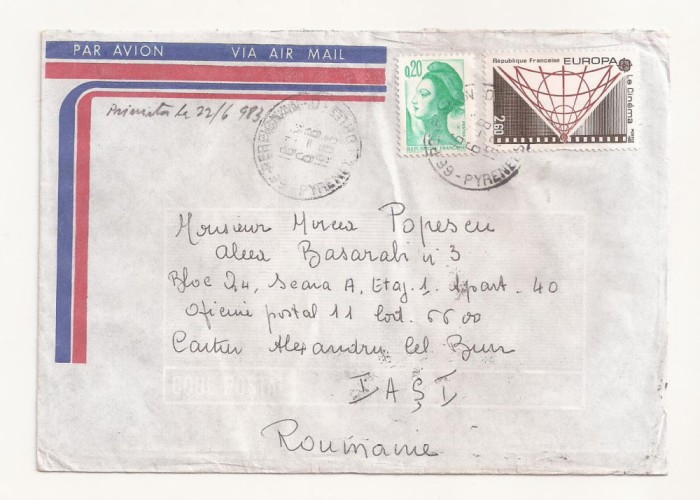 PAR AVION VIA AIR MAIL
22/6 983
0,20
République Française EUROPA
Le Cinéma
2,60
PYRENEES
66 - PYRENEES
Monsieur Mircea Popescu
aleea Basarabi n° 3
Bloc I4, Scara A, Etaj. 1. Apart. 40
Oficiul postal 11 Cod. 6600
Cartier Alexandru cel Bun
IAŞI
Roumanie